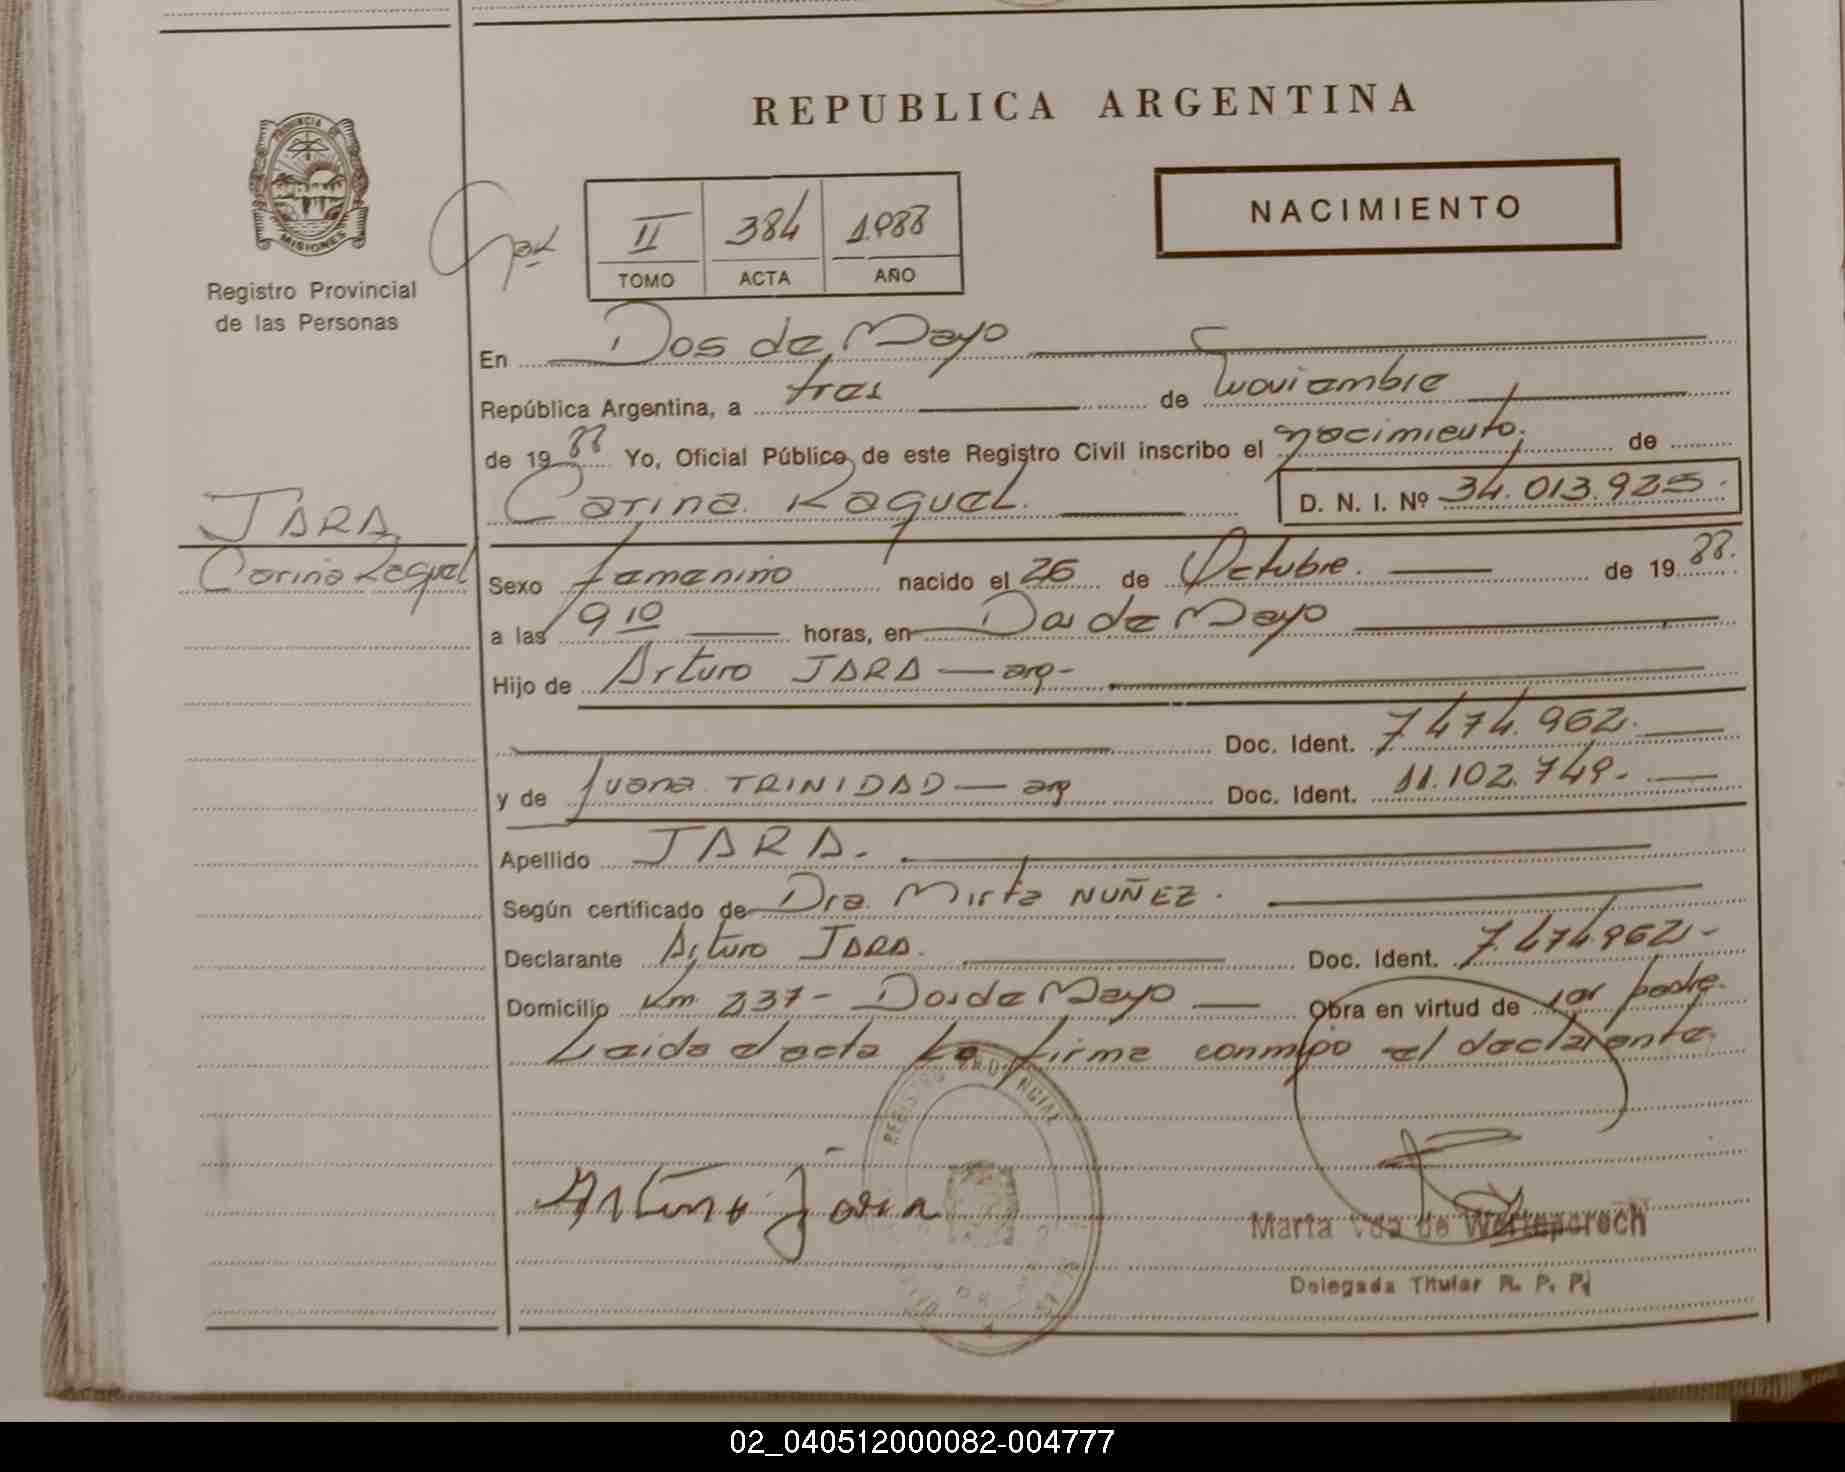 REPUBLICA ARGENTINA
PROVINCIA DE
MISIONES
Registro Provincial
de las Personas
II 384 1988
TOMO ACTA AÑO
NACIMIENTO
En Dos de Mayo
República Argentina, a tres de Noviembre
de 1988 Yo, Oficial Público de este Registro Civil inscribo el nacimiento de
Carina Raquel D. N. I. Nº 34.013.925
JARA
Carina Raquel
Sexo femenino nacido el 26 de Octubre. de 1988.
a las 9 10 horas, en Dos de Mayo
Hijo de Arturo JARA — arg-
Doc. Ident. 7.474.962
y de Juana TRINIDAD — arg Doc. Ident. 11.102.749-
Apellido JARA.
Según certificado de Dra. Mirta NUÑEZ.
Declarante Arturo JARA. Doc. Ident. 7.474.962-
Domicilio Km 237- Dos de Mayo Obra en virtud de ser padre.
Leida el acta la firma conmigo el declarante.
REGISTRO PROVINCIAL
Arturo Jara
Marta Vda de
Delegada Titular R. P. P.
02_040512000082-004777